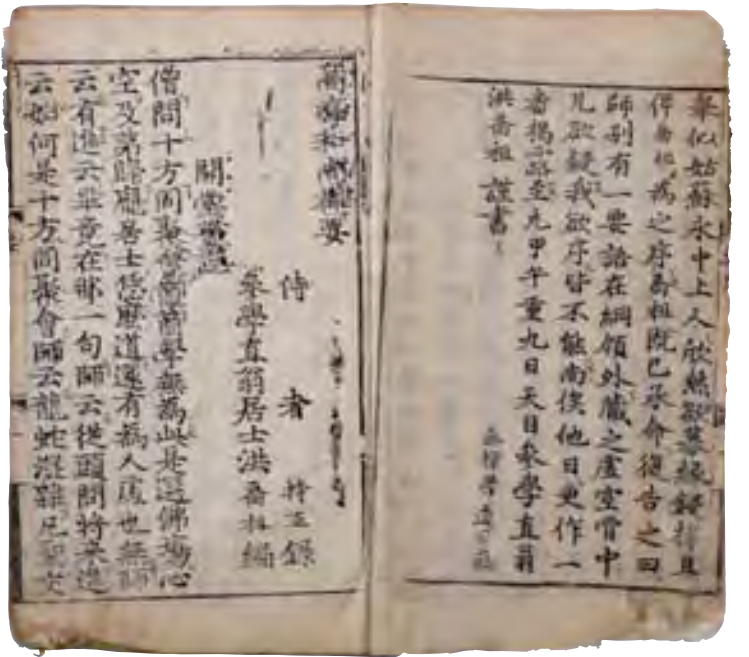 舉似姑蘇永中上人欣然欲募緣鋟梓且
俾喬祖爲之序喬祖旣已承命復告之曰
師別有一要語在綱領外藏之虛空骨中
兀欲鋟我欲序皆不能尚俟他日更作一
番揭露至元甲午重九日天目參學直翁
洪喬祖 謹書
高峰和尚禪要
侍者 持正 錄
參學直翁居士洪喬祖 編
開堂普說
僧問十方同聚會箇箇學無爲此是選佛場心
空及第歸龐居士恁麽道還有爲人處也無師
云有進云畢竟在那一句師云從頭問將來進
云如何是十方同聚會師云龍蛇混雜凡聖交